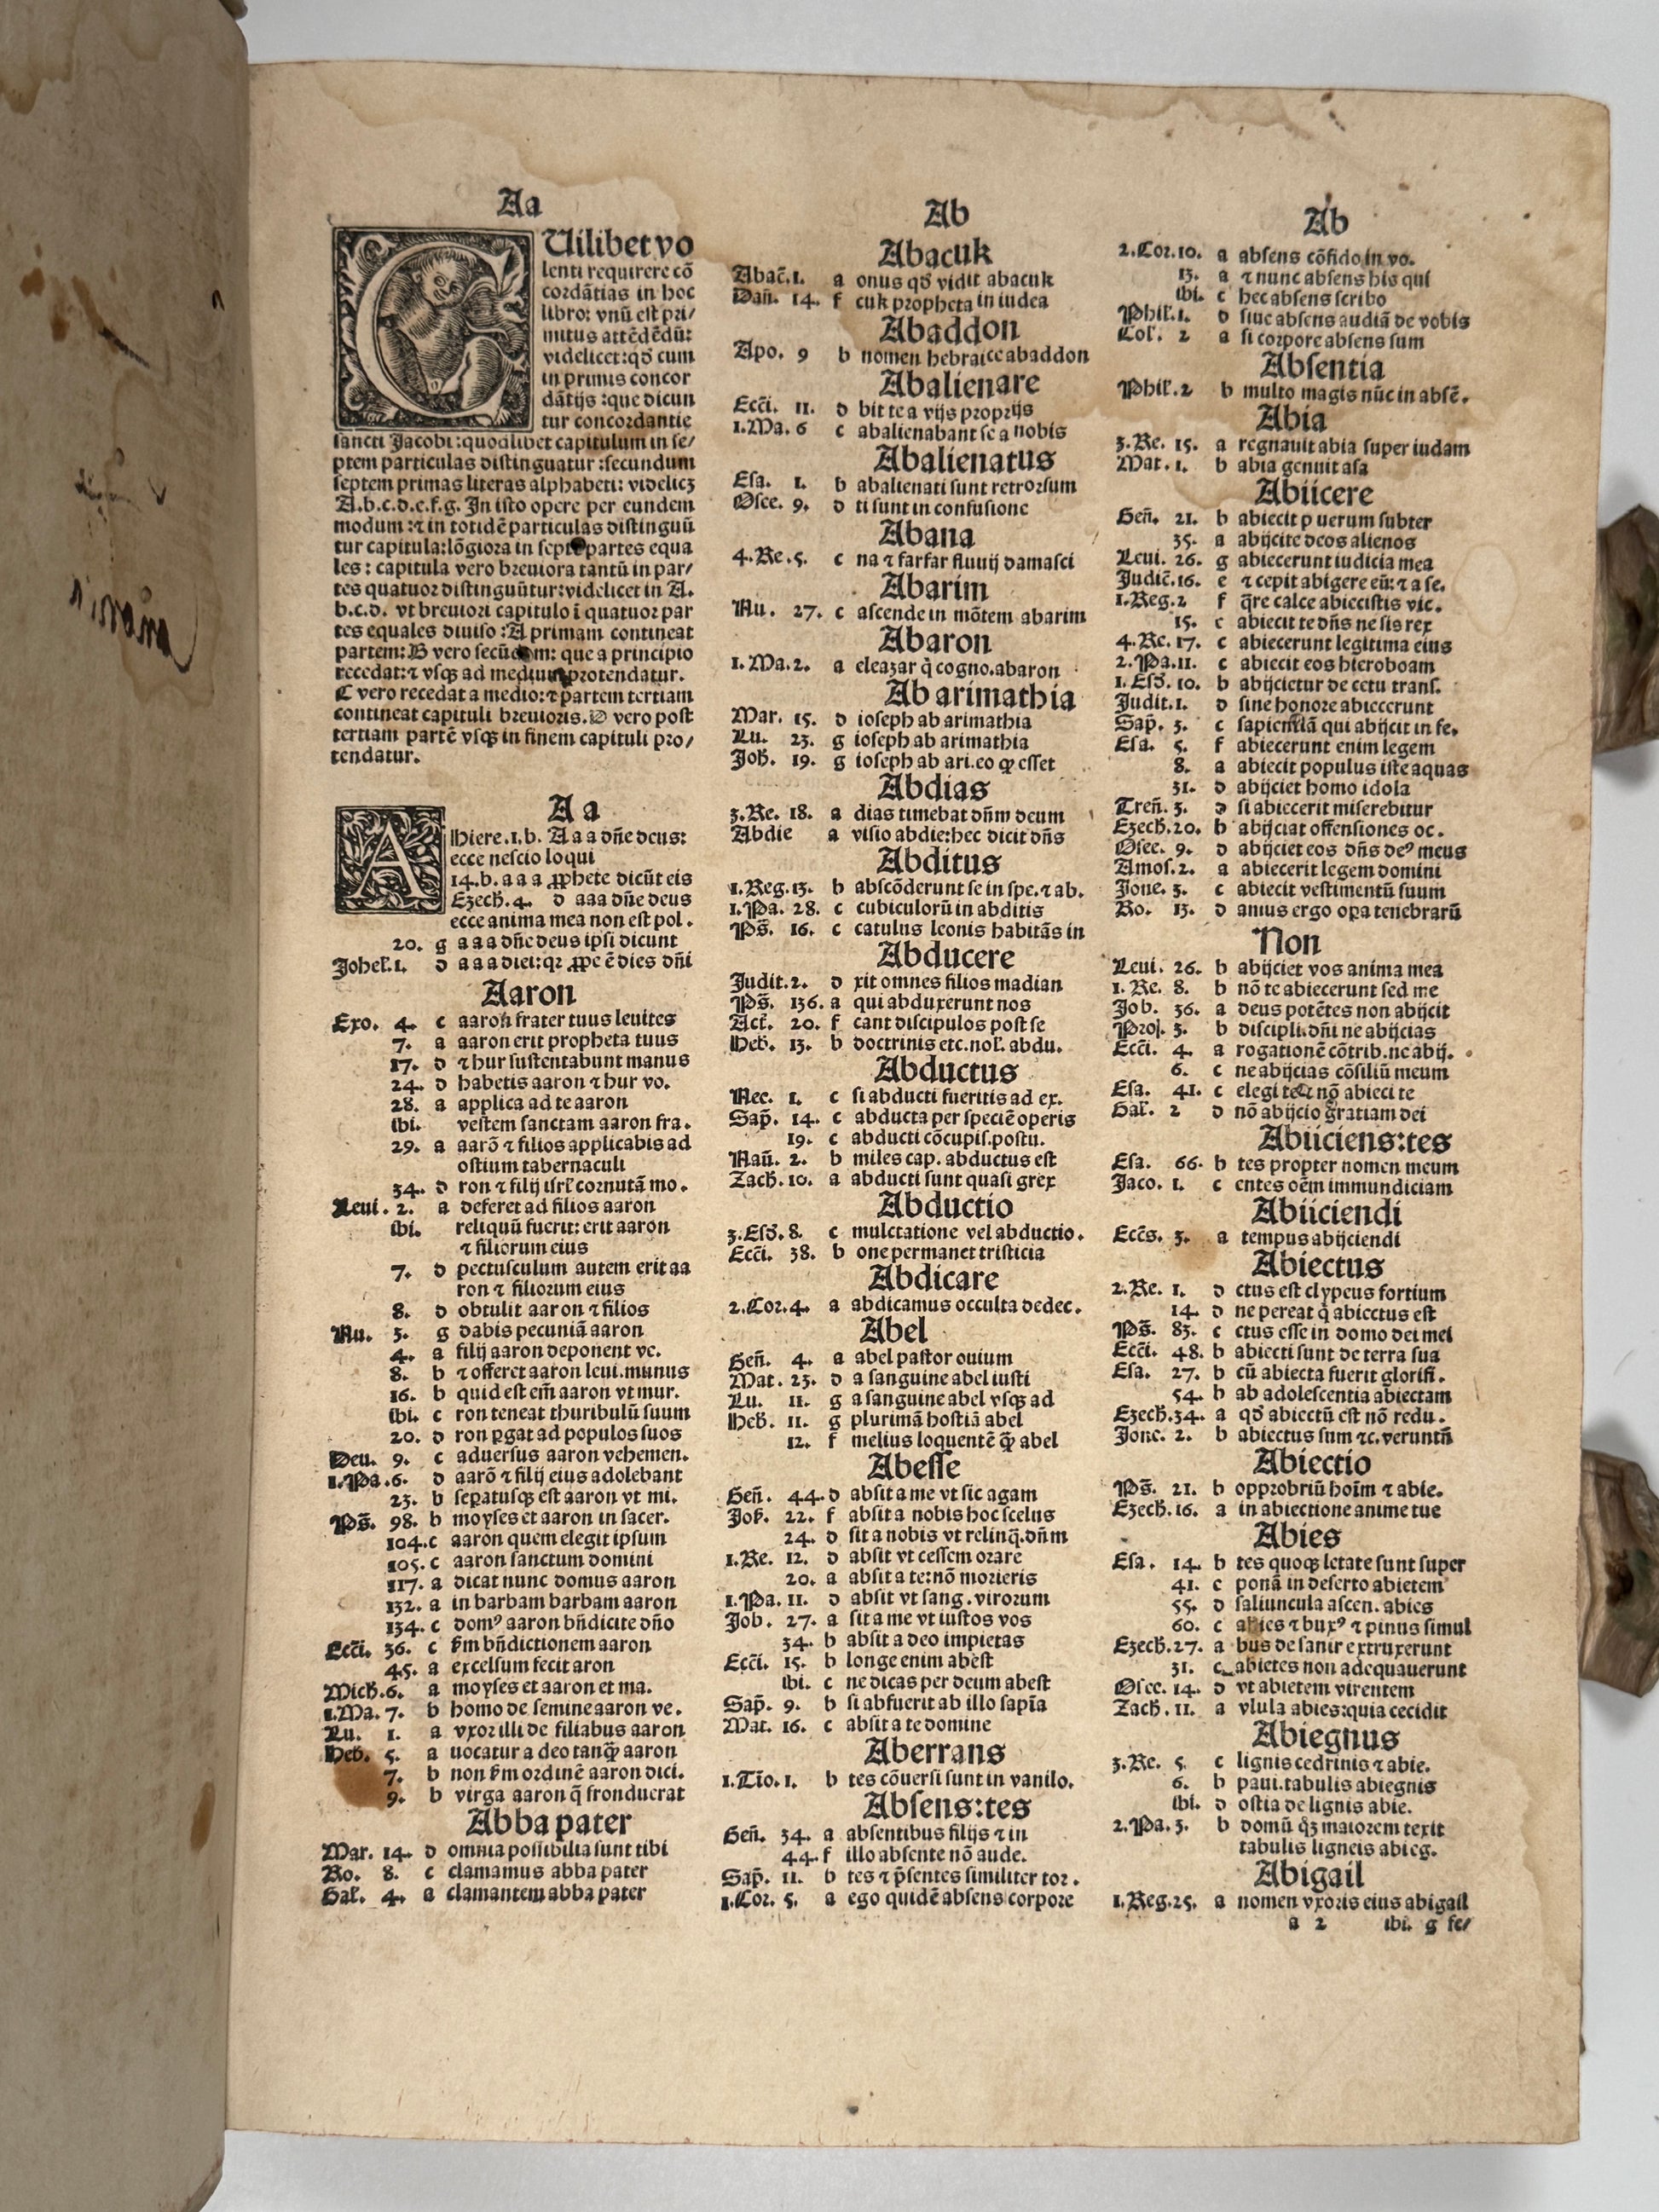 Aa
CUilibet vo
lenti requirere cō
cordātias in hoc
libro: vnū est pri/
mitus attēdēdū:
videlicet: qđ cum
in primis concor
dātijs: que dicun
tur concordantie
sancti Jacobi: quodlibet capitulum in se/
ptem particulas distinguatur: secundum
septem primas literas alphabeti: videlicꝫ
A.b.c.d.e.f.g. In isto opere per eundem
modum: ⁊ in totidē particulas distinguū
tur capitula: lōgiora in septē partes equa
les: capitula vero breuiora tantū in par/
tes quatuor distinguūtur: videlicet in A.
b.c.d. vt breuiori capitulo ī quatuor par
tes equales diuiso: A primam contineat
partem: B vero secūdam: que a principio
recedat: ⁊ vsqꝫ ad medium protendatur.
C vero recedat a medio: ⁊ partem tertiam
contineat capituli breuioris. D vero post
tertiam partē vsqꝫ in finem capituli pro/
tendatur.
A a
A Ihiere.1.b. A a a dñe deus:
ecce nescio loqui
14.b. a a a ꝓphete dicūt eis
Ezech.4. d aaa dñe deus
ecce anima mea non est pol.
20. g a a a dñe deus ipsi dicunt
Johel.1. d a a a diei: qꝛ ꝓpe ē dies dñi
Aaron
Exo. 4. c aaron frater tuus leuites
7. a aaron erit propheta tuus
17. d ⁊ hur sustentabunt manus
24. d habetis aaron ⁊ hur vo.
28. a applica ad te aaron
ibi. vestem sanctam aaron fra.
29. a aarō ⁊ filios applicabis ad
ostium tabernaculi
34. d ron ⁊ filij isrl̄ cornutā mo.
Leui. 2. a deferet ad filios aaron
ibi. reliquū fuerit: erit aaron
⁊ filiorum eius
7. d pectusculum autem erit aa
ron ⁊ filiorum eius
8. d obtulit aaron ⁊ filios
Nu. 3. g dabis pecuniā aaron
4. a filij aaron deponent ve.
8. b ⁊ offeret aaron leui.munus
16. b quid est em̄ aaron vt mur.
ibi. c ron teneat thuribulū suum
20. d ron ꝑgat ad populos suos
Deu. 9. c aduersus aaron vehemen.
1.Pa.6. d aarō ⁊ filij eius adolebant
23. b sepatusqꝫ est aaron vt mi.
Ps̄. 98. b moyses et aaron in sacer.
104. c aaron quem elegit ipsum
105. c aaron sanctum domini
117. a dicat nunc domus aaron
132. a in barbam barbam aaron
134. c domꝰ aaron bn̄dicite dño
Ecci̅. 36. c s̄m bn̄dictionem aaron
45. a excelsum fecit aron
Mich.6. a moyses et aaron et ma.
1.Ma. 7. b homo de semine aaron ve.
Lu. 1. a vxor illi de filiabus aaron
Heb. 5. a uocatur a deo tanqꝫ aaron
7. b non s̄m ordinē aaron dici.
9. b virga aaron q̄ fronduerat
Abba pater
Mar. 14. d omnia possibilia sunt tibi
Ro. 8. c clamamus abba pater
Gal. 4. a clamantem abba pater
Ab
Abacuk
Abac̄.1. a onus qđ vidit abacuk
Dan̄. 14. f cuk propheta in iudea
Abaddon
Apo. 9 b nomen hebraice abaddon
Abalienare
Ecci̅. 11. d bit te a vijs proprijs
1.Ma. 6 c abalienabant se a nobis
Abalienatus
Esa. 1. b abalienati sunt retrorsum
Osee. 9. d ti sunt in confusione
Abana
4.Re.5. c na ⁊ farfar fluuij damasci
Abarim
Nu. 27. c ascende in mōtem abarim
Abaron
1.Ma.2. a eleazar q̇ cogno.abaron
Ab arimathia
Mar. 15. d ioseph ab arimathia
Lu. 23. g ioseph ab arimathia
Joh. 19. g ioseph ab ari.eo ꝙ esset
Abdias
3.Re. 18. a dias timebat dñm deum
Abdie a visio abdie: hec dicit dñs
Abditus
1.Reg.13. b abscōderunt se in spe.⁊ ab.
1.Pa. 28. c cubiculorū in abditis
Ps̄. 16. c catulus leonis habitās in
Abducere
Judit.2. d xit omnes filios madian
Ps̄. 136. a qui abduxerunt nos
Act. 20. f cant discipulos post se
Heb. 13. b doctrinis etc.nol̄. abdu.
Abductus
Nec. 1. c si abducti fueritis ad ex.
Sap̄. 14. c abducta per speciē operis
19. c abducti cōcupis.postu.
Nau̅. 2. b miles cap. abductus est
Zach. 10. a abducti sunt quasi grex
Abductio
3.Esd. 8. c mulctatione vel abductio.
Ecci̅. 38. b one permanet tristicia
Abdicare
2.Cor.4. a abdicamus occulta dedec.
Abel
Gen̄. 4. a abel pastor ouium
Mat. 23. d a sanguine abel iusti
Lu. 11. g a sanguine abel vsqꝫ ad
Heb. 11. g plurimā hostiā abel
12. f melius loquentē qꝫ abel
Abesse
Gen̄. 44. d absit a me vt sic agam
Jos. 22. f absit a nobis hoc scelus
24. d sit a nobis vt relinq̄.dñm
1.Re. 12. d absit vt cessem orare
20. a absit a te: nō morieris
1.Pa. 11. d absit vt sang. virorum
Job. 27. a sit a me vt iustos vos
34. b absit a deo impietas
Ecci̅. 15. b longe enim abest
ibi. c ne dicas per deum abest
Sap̄. 9. b si abfuerit ab illo sapīa
Mat. 16. c absit a te domine
Aberrans
1.Tio. 1. b tes cōuersi sunt in vanilo.
Absens:tes
Gen̄. 34. a absentibus filijs ⁊ in
44. f illo absente nō aude.
Sap̄. 11. b tes ⁊ p̄sentes similiter tor.
1.Cor. 5. a ego quidē absens corpore
Ab
2.Cor.10. a absens cōfido in vo.
13. a ⁊ nunc absens his qui
ibi. c hec absens scribo
Phil̄.1. d siue absens audiā de vobis
Col̄. 2 a si corpore absens sum
Absentia
Phil̄.2 b multo magis nūc in absē.
Abia
3.Re. 15. a regnauit abia super iudam
Mat. 1. b abia genuit asa
Abiicere
Gen̄. 21. b abiecit p uerum subter
35. a abijcite deos alienos
Leui. 26. g abiecerunt iudicia mea
Judic̄.16. e ⁊ cepit abigere eū: ⁊ a se.
1.Reg.2 f q̄re calce abiecistis vic.
15. c abiecit te dñs ne sis rex
4.Re. 17. c abiecerunt legitima eius
2.Pa.11. c abiecit eos hieroboam
1.Esd. 10. b abijcietur de cetu trans.
Judit.1. d sine honore abiecerunt
Sap̄. 3. c sapientiā qui abijcit in fe.
Esa. 5. f abiecerunt enim legem
8. a abiecit populus iste aquas
31. d abijciet homo idola
Tren̄. 3. d si abiecerit miserebitur
Ezech.20. b abijciat offensiones oc.
Osee. 9. d abijciet eos dñs deꝰ meus
Amos.2. a abiecerit legem domini
Jone. 3. c abiecit vestimentū suum
Ro. 13. d amus ergo opa tenebrarū
Non
Leui. 26. b abijciet vos anima mea
1.Re. 8. b nō te abiecerunt sed me
Job. 36. a deus potētes non abijcit
Pro. 3. b discipli.dñi ne abijcias
Ecci̅. 4. a rogationē cōtrib.ne abij.
6. c ne abijcias cōsiliū meum
Esa. 41. c elegi te ⁊ nō abieci te
Gal̄. 2 d nō abijcio gratiam dei
Abiiciens:tes
Esa. 66. b tes propter nomen meum
Jaco. 1. c entes oēm immundiciam
Abiiciendi
Ecc̄s. 3. a tempus abijciendi
Abiectus
2.Re. 1. d ctus est clypeus fortium
14. d ne pereat q̇ abiectus est
Ps̄. 83. c ctus esse in domo dei mei
Ecci̅. 48. b abiecti sunt de terra sua
Esa. 27. b cū abiecta fuerit glorifi.
54. b ab adolescentia abiectam
Ezech.34. a qđ abiectū est nō redu.
Jone. 2. b abiectus sum ⁊c.veruntn̄
Abiectio
Ps̄. 21. b opprobriū hoīm ⁊ abie.
Ezech.16. a in abiectione anime tue
Abies
Esa. 14. b tes quoqꝫ letate sunt super
41. c ponā in deserto abietem
55. d saliuncula ascen. abies
60. c abies ⁊ buxꝰ ⁊ pinus simul
Ezech.27. a bus de sanir extruxerunt
31. c abietes non adequauerunt
Osee. 14. d vt abietem virentem
Zach. 11. a vlula abies: quia cecidit
Abiegnus
3.Re. 5. c lignis cedrinis ⁊ abie.
6. b paui.tabulis abiegnis
ibi. d ostia de lignis abie.
2.Pa.3. b domū q̊ꝫ maiorem texit
tabulis ligneis abieg.
Abigail
1.Reg.25. a nomen vxoris eius abigail
a 2 ibi. g fe/